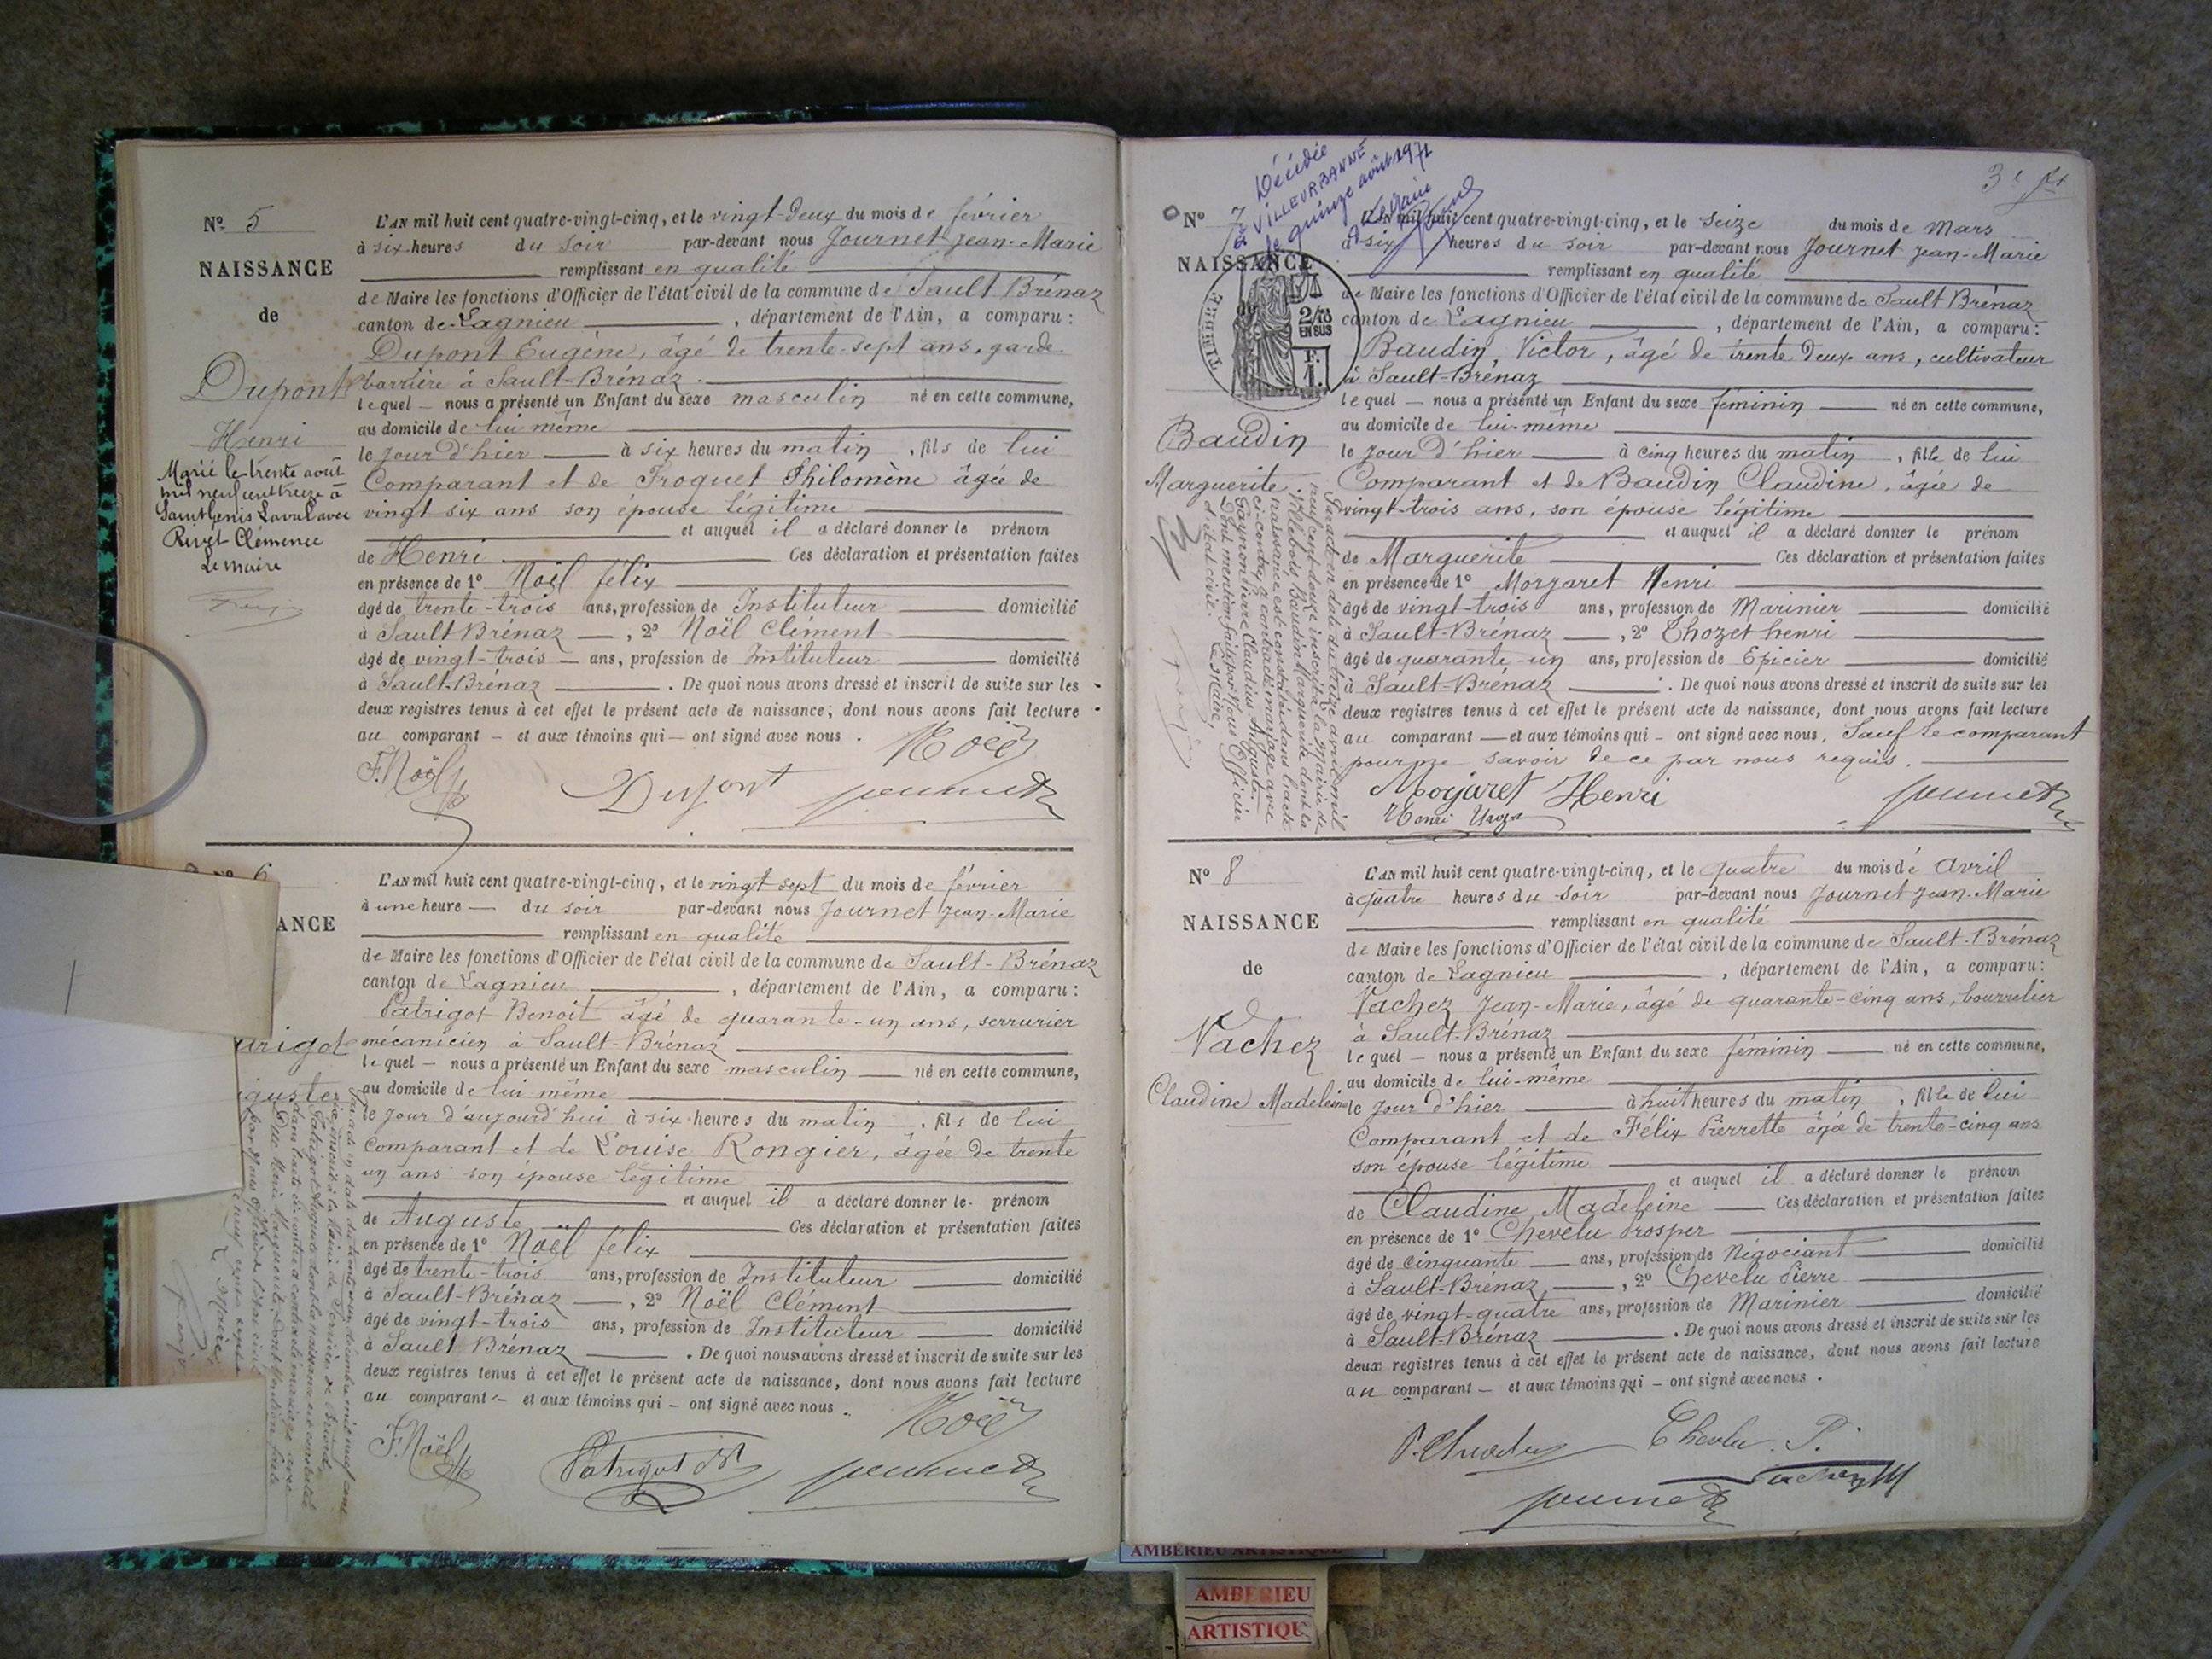 Nº 5
NAISSANCE
de
Dupont
Henri
Marié le trente août
mil neuf cent treize à
Saint Genis Laval avec
Rivet Clémence
Le Maire
L'AN mil huit cent quatre-vingt-cinq, et le vingt-deux du mois de février
à six heures du soir par-devant nous Journet Jean-Marie
remplissant en qualité
de Maire les fonctions d'Officier de l'état civil de la commune de Sault Brénaz
canton de Lagnieu, département de l'Ain, a comparu :
Dupont Eugène, âgé de trente-sept ans, garde
barrière à Sault-Brénaz.
lequel — nous a présenté un Enfant du sexe masculin né en cette commune,
au domicile de lui même
le jour d'hier à six heures du matin, fils de lui
Comparant et de Froquet Philomène âgée de
vingt six ans son épouse légitime
et auquel il a déclaré donner le prénom
de Henri Ces déclaration et présentation faites
en présence de 1º Noël félix
âgé de trente-trois ans, profession de Instituteur domicilié
à Sault Brénaz —, 2º Noël Clément
âgé de vingt-trois — ans, profession de Instituteur domicilié
à Sault-Brénaz. De quoi nous avons dressé et inscrit de suite sur les
deux registres tenus à cet effet le présent acte de naissance, dont nous avons fait lecture
au comparant — et aux témoins qui — ont signé avec nous.
Noël
F. Noël Dupont Journet
Nº 6
ANCE
arigot
guste
L'AN mil huit cent quatre-vingt-cinq, et le vingt sept du mois de février
à une heure — du soir par-devant nous Journet Jean-Marie
remplissant en qualité
de Maire les fonctions d'Officier de l'état civil de la commune de Sault-Brénaz
canton de Lagnieu, département de l'Ain, a comparu :
Patrigot Benoit âgé de quarante-un ans, serrurier
mécanicien à Sault-Brénaz
lequel — nous a présenté un Enfant du sexe masculin — né en cette commune,
au domicile de lui même
le jour d'aujourd'hui à six heures du matin, fils de lui
Comparant et de Louise Rongier, âgée de trente
un ans son épouse légitime
et auquel il a déclaré donner le prénom
de Auguste Ces déclaration et présentation faites
en présence de 1º Noël félix
âgé de trente-trois ans, profession de Instituteur domicilié
à Sault-Brénaz —, 2º Noël Clément
âgé de vingt-trois ans, profession de Instituteur domicilié
à Sault Brénaz. De quoi nous avons dressé et inscrit de suite sur les
deux registres tenus à cet effet le présent acte de naissance, dont nous avons fait lecture
au comparant — et aux témoins qui — ont signé avec nous.
Noël
F. Noël Patrigot Journet
3e
Décédée
à VILLEURBANNE
le quinze août 1971
Le Maire
Nº 7
NAISSANCE
de
TIMBRE
2/10
EN SUS
Baudin
Marguerite
L'AN mil huit cent quatre-vingt-cinq, et le seize du mois de Mars
à six heures du soir par-devant nous Journet Jean-Marie
remplissant en qualité
de Maire les fonctions d'Officier de l'état civil de la commune de Sault Brénaz
canton de Lagnieu, département de l'Ain, a comparu :
Baudin, Victor, âgé de trente Deux ans, cultivateur
à Sault-Brénaz
lequel — nous a présenté un Enfant du sexe féminin — né en cette commune,
au domicile de lui-même
le jour d'hier — à cinq heures du matin, fille de lui
Comparant et de Baudin Claudine, âgée de
vingt-trois ans, son épouse légitime
et auquel il a déclaré donner le prénom
de Marguerite Ces déclaration et présentation faites
en présence de 1º Morgaret Henri
âgé de vingt-trois ans, profession de Marinier domicilié
à Sault-Brénaz —, 2º Thozet henri
âgé de quarante-un ans, profession de Epicier domicilié
à Sault-Brénaz. De quoi nous avons dressé et inscrit de suite sur les
deux registres tenus à cet effet le présent acte de naissance, dont nous avons fait lecture
au comparant — et aux témoins qui — ont signé avec nous, Sauf le comparant
pour ne savoir de ce par nous requis.
Morgaret Henri
Journet
Nº 8
NAISSANCE
de
Vachez
Claudine Madeleine
L'AN mil huit cent quatre-vingt-cinq, et le quatre du mois de Avril
à quatre heures du soir par-devant nous Journet Jean-Marie
remplissant en qualité
de Maire les fonctions d'Officier de l'état civil de la commune de Sault-Brénaz
canton de Lagnieu, département de l'Ain, a comparu :
Vachez Jean-Marie, âgé de quarante-cinq ans, bourrelier
à Sault-Brénaz
lequel — nous a présenté un Enfant du sexe féminin — né en cette commune,
au domicile de lui-même
le jour d'hier à huit heures du matin, fille de lui
Comparant et de Félix Pierrette âgée de trente-cinq ans
son épouse légitime
et auquel il a déclaré donner le prénom
de Claudine Madeleine — Ces déclaration et présentation faites
en présence de 1º Chevelu Prosper
âgé de cinquante — ans, profession de Négociant domicilié
à Sault-Brénaz —, 2º Chevelu Pierre
âgé de vingt-quatre ans, profession de Marinier domicilié
à Sault-Brénaz. De quoi nous avons dressé et inscrit de suite sur les
deux registres tenus à cet effet le présent acte de naissance, dont nous avons fait lecture
au comparant — et aux témoins qui — ont signé avec nous.
P. Chevelu Chevelu P.
Vachez
Journet
AMBÉRIEU ARTISTIQUE
AMBERIEU
ARTISTIQU